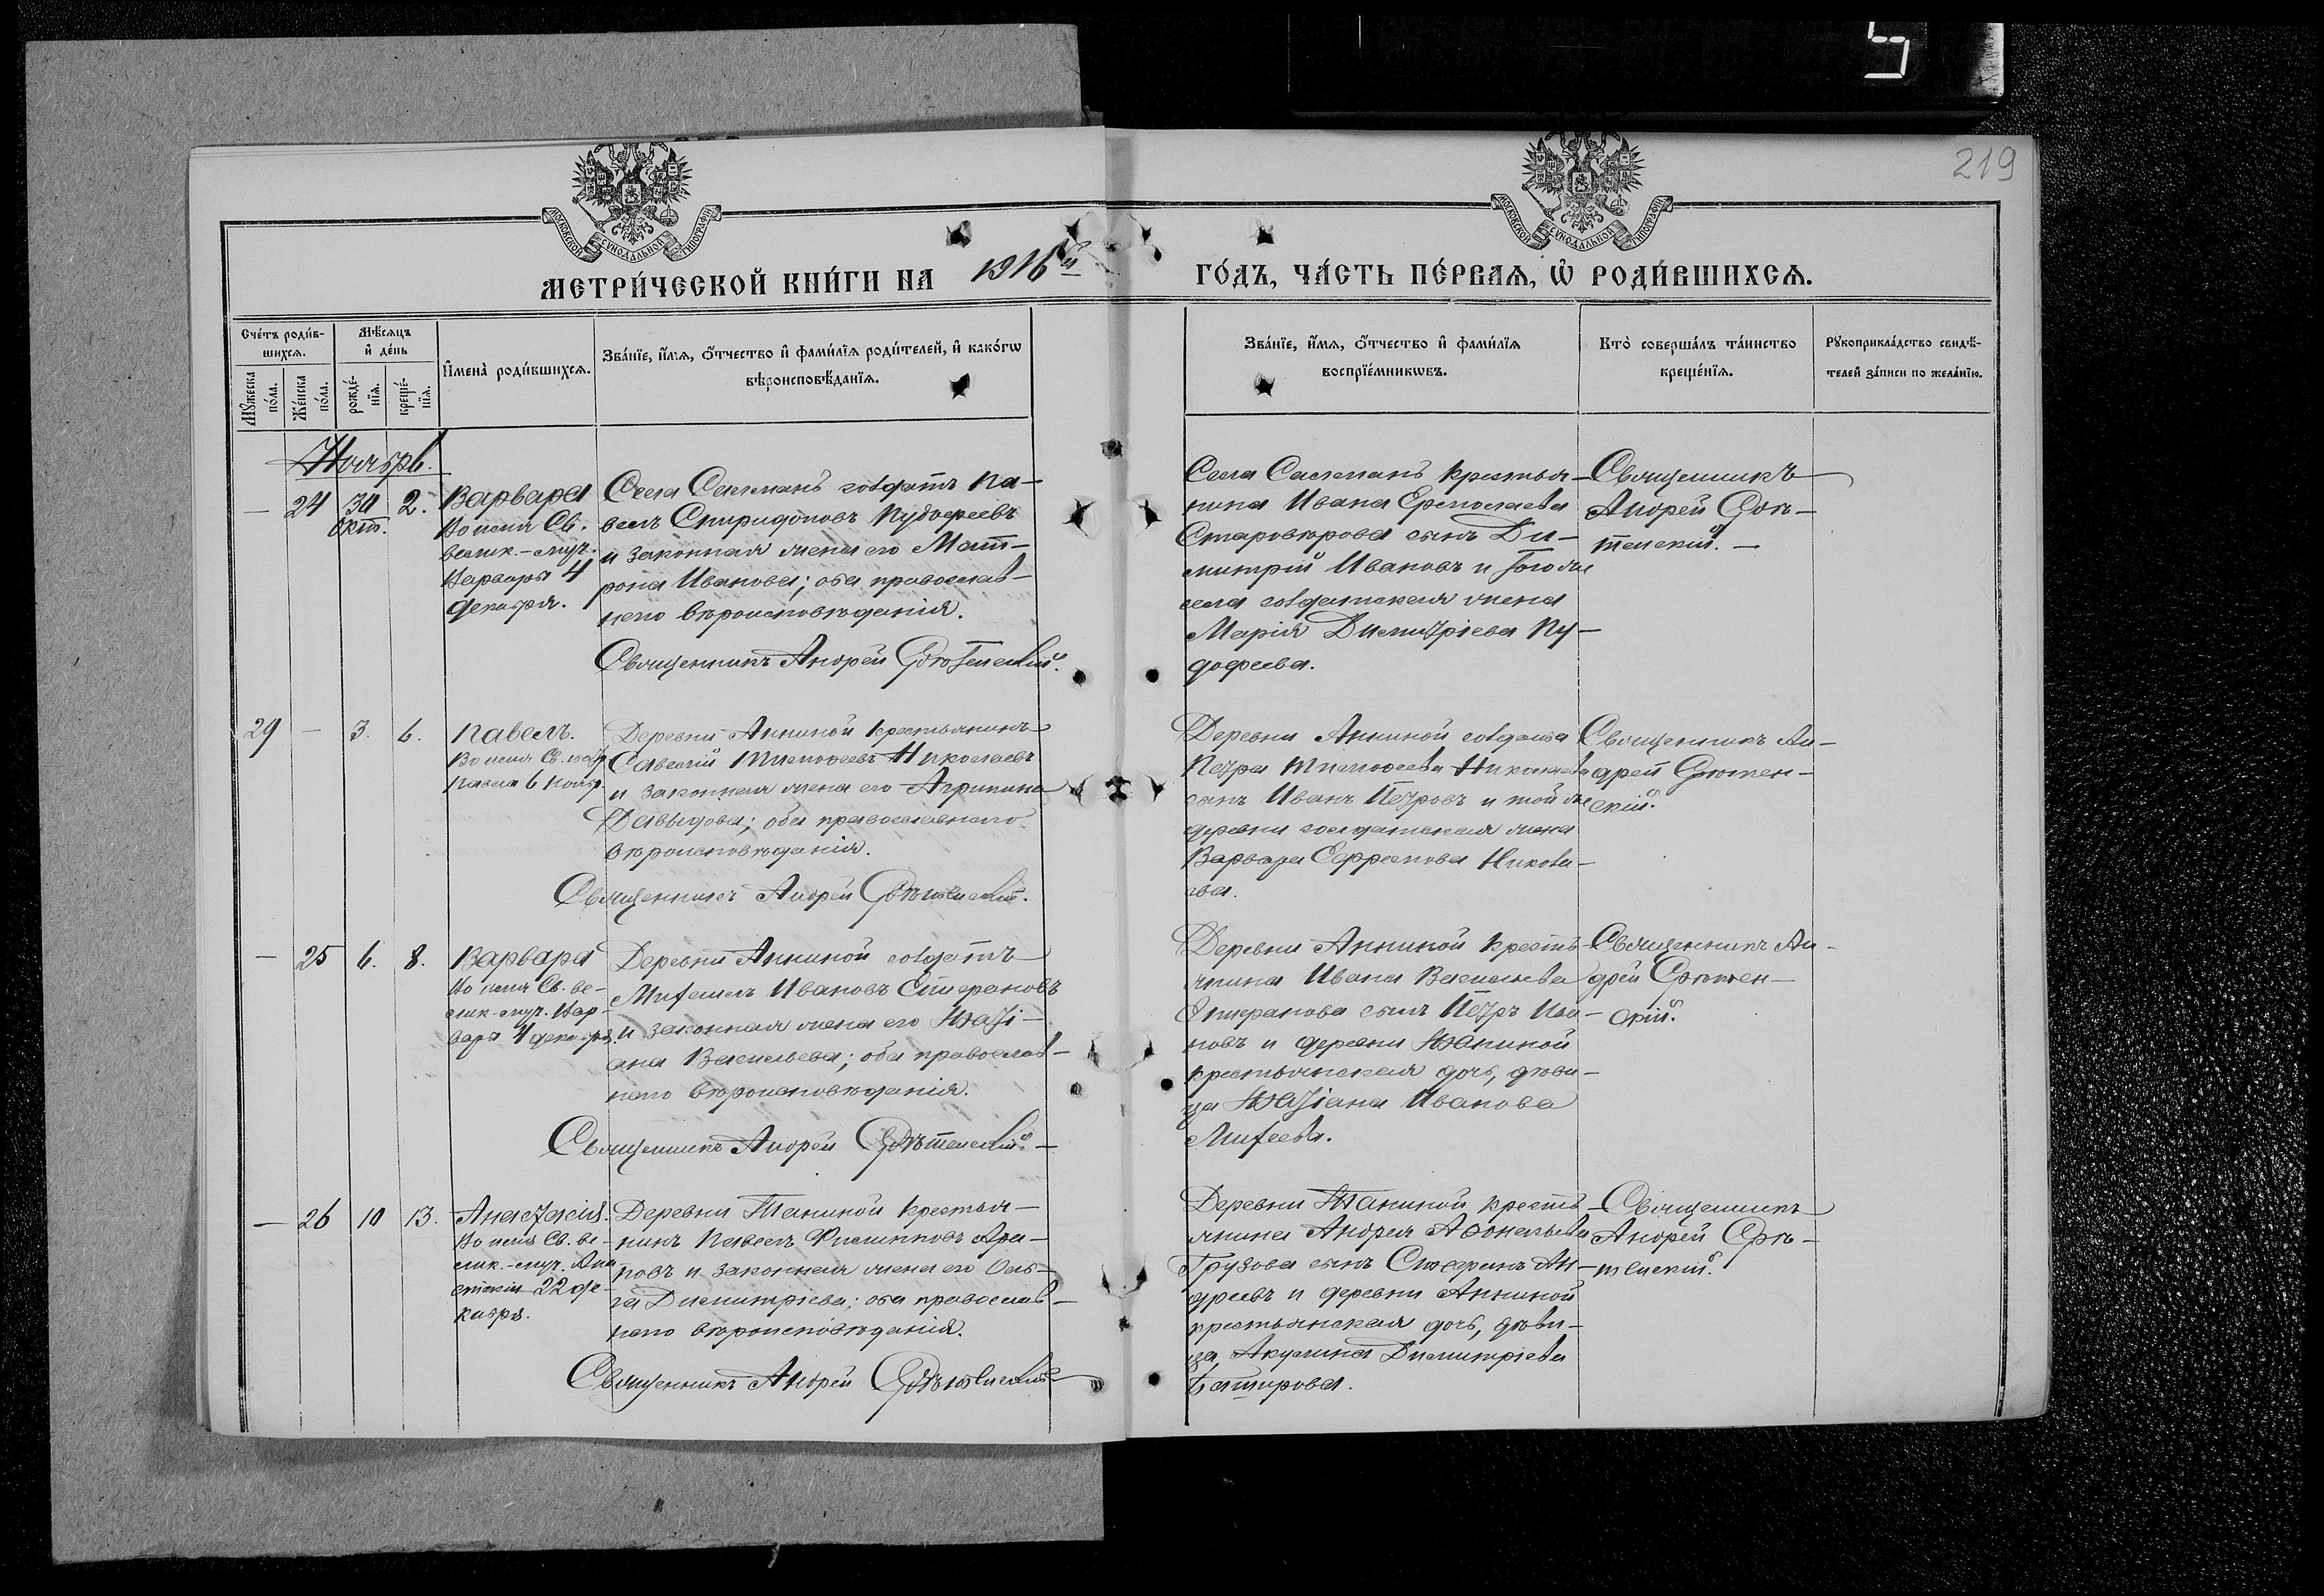 219
МОСКОВСКОЙ СѴНОДАЛЬНОЙ ТИПОГРАФІИ
МОСКОВСКОЙ СѴНОДАЛЬНОЙ ТИПОГРАФІИ
МЕТРИ́ЧЕСКОЙ КНИ́ГИ НА 1916й ГО́ДЪ, ЧА́СТЬ ПЕ́РВАѦ, Ѡ҆ РОДИ́ВШИХСѦ.
Сче́тъ роди́в-
шихсѧ.
Мꙋ́жеска по́ла.
Же́нска по́ла.
Мѣ́сѧцъ и҆ де́нь
рожде́-
нїѧ.
креще́-
нїѧ.
И҆мена̀ роди́вшихсѧ.
Зва́нїе, и҆́мѧ, ѻ҆́тчество и҆ фами́лїѧ роди́телей, и҆ како́гѡ
вѣроисповѣ́данїѧ.
Зва́нїе, и҆́мѧ, ѻ҆́тчество и҆ фами́лїѧ
воспрїе́мникѡвъ.
Кто̀ соверша́лъ та́инство
креще́нїѧ.
Рꙋкоприкла́дство свидѣ́-
телей за́писи по жела́нїю.
Ноябрь.
— 24 30 окт. 2.
Варвара
Во имя Св.
велик.-муч.
Варвары 4
декабря.
Села Салманъ солдатъ Па-
велъ Спиридоновъ Кудофеевъ
и законная жена его Мат-
рона Иванова; оба православ-
наго вѣроисповѣданія.
Священникъ Андрей Срѣтенскій.
Села Салманъ крестья-
нина Ивана Ермолаева
Староверова сынъ Ди-
митрій Ивановъ и того же
села солдатская жена
Марія Димитріева Ку-
дофеева.
Священникъ
Андрей Срѣ-
тенскій. —
29 — 3. 6.
Павелъ.
Во имя Св.
Павла 6 нояб.
Деревни Анниной крестьянинъ
Савелій Тимофеевъ Николаевъ
и законная жена его Агрипина
Давыдова; оба православнаго
вѣроисповѣданія.
Священникъ Андрей Срѣтенскій.
Деревни Анниной солдата
Петра Тимофеева Николаева
сынъ Иванъ Петровъ и той же
деревни солдатская жена
Варвара Ефремова Никола-
ева.
Священникъ Ан-
дрей Срѣтен-
скій.
— 25 6. 8.
Варвара
Во имя Св. ве-
лик-муч. Вар-
вары 4 декабря.
Деревни Анниной солдатъ
Михаилъ Ивановъ Степановъ
и законная жена его Тати-
ана Васильева; оба православ-
наго вѣроисповѣданія.
Священникъ Андрей Срѣтенскій. —
Деревни Анниной кресть-
янина Ивана Васильева
Степанова сынъ Петръ Ива-
новъ и деревни Таниной
крестьянская дочь, дѣви-
ца Татіана Иванова
Михеева.
Священникъ Ан-
дрей Срѣтен-
скій.
— 26 10 13.
Анастасія.
Во имя Св. ве-
лик.-муч. Ана
стасіи 22 де-
кабря.
Деревни Таниной крестья-
нинъ Павелъ Филипповъ Ара-
повъ и законная жена его Оль-
га Димитріева; оба православ-
наго вѣроисповѣданія.
Священникъ Андрей Срѣтенскій
Деревни Таниной кресть-
янина Андрея Аѳонасьева
Грузова сынъ Стефанъ Ан-
дреевъ и деревни Анниной
крестьянская дочь, дѣви-
ца, Акулина Димитріева
Батырова.
Священникъ
Андрей Срѣ-
тенскій.